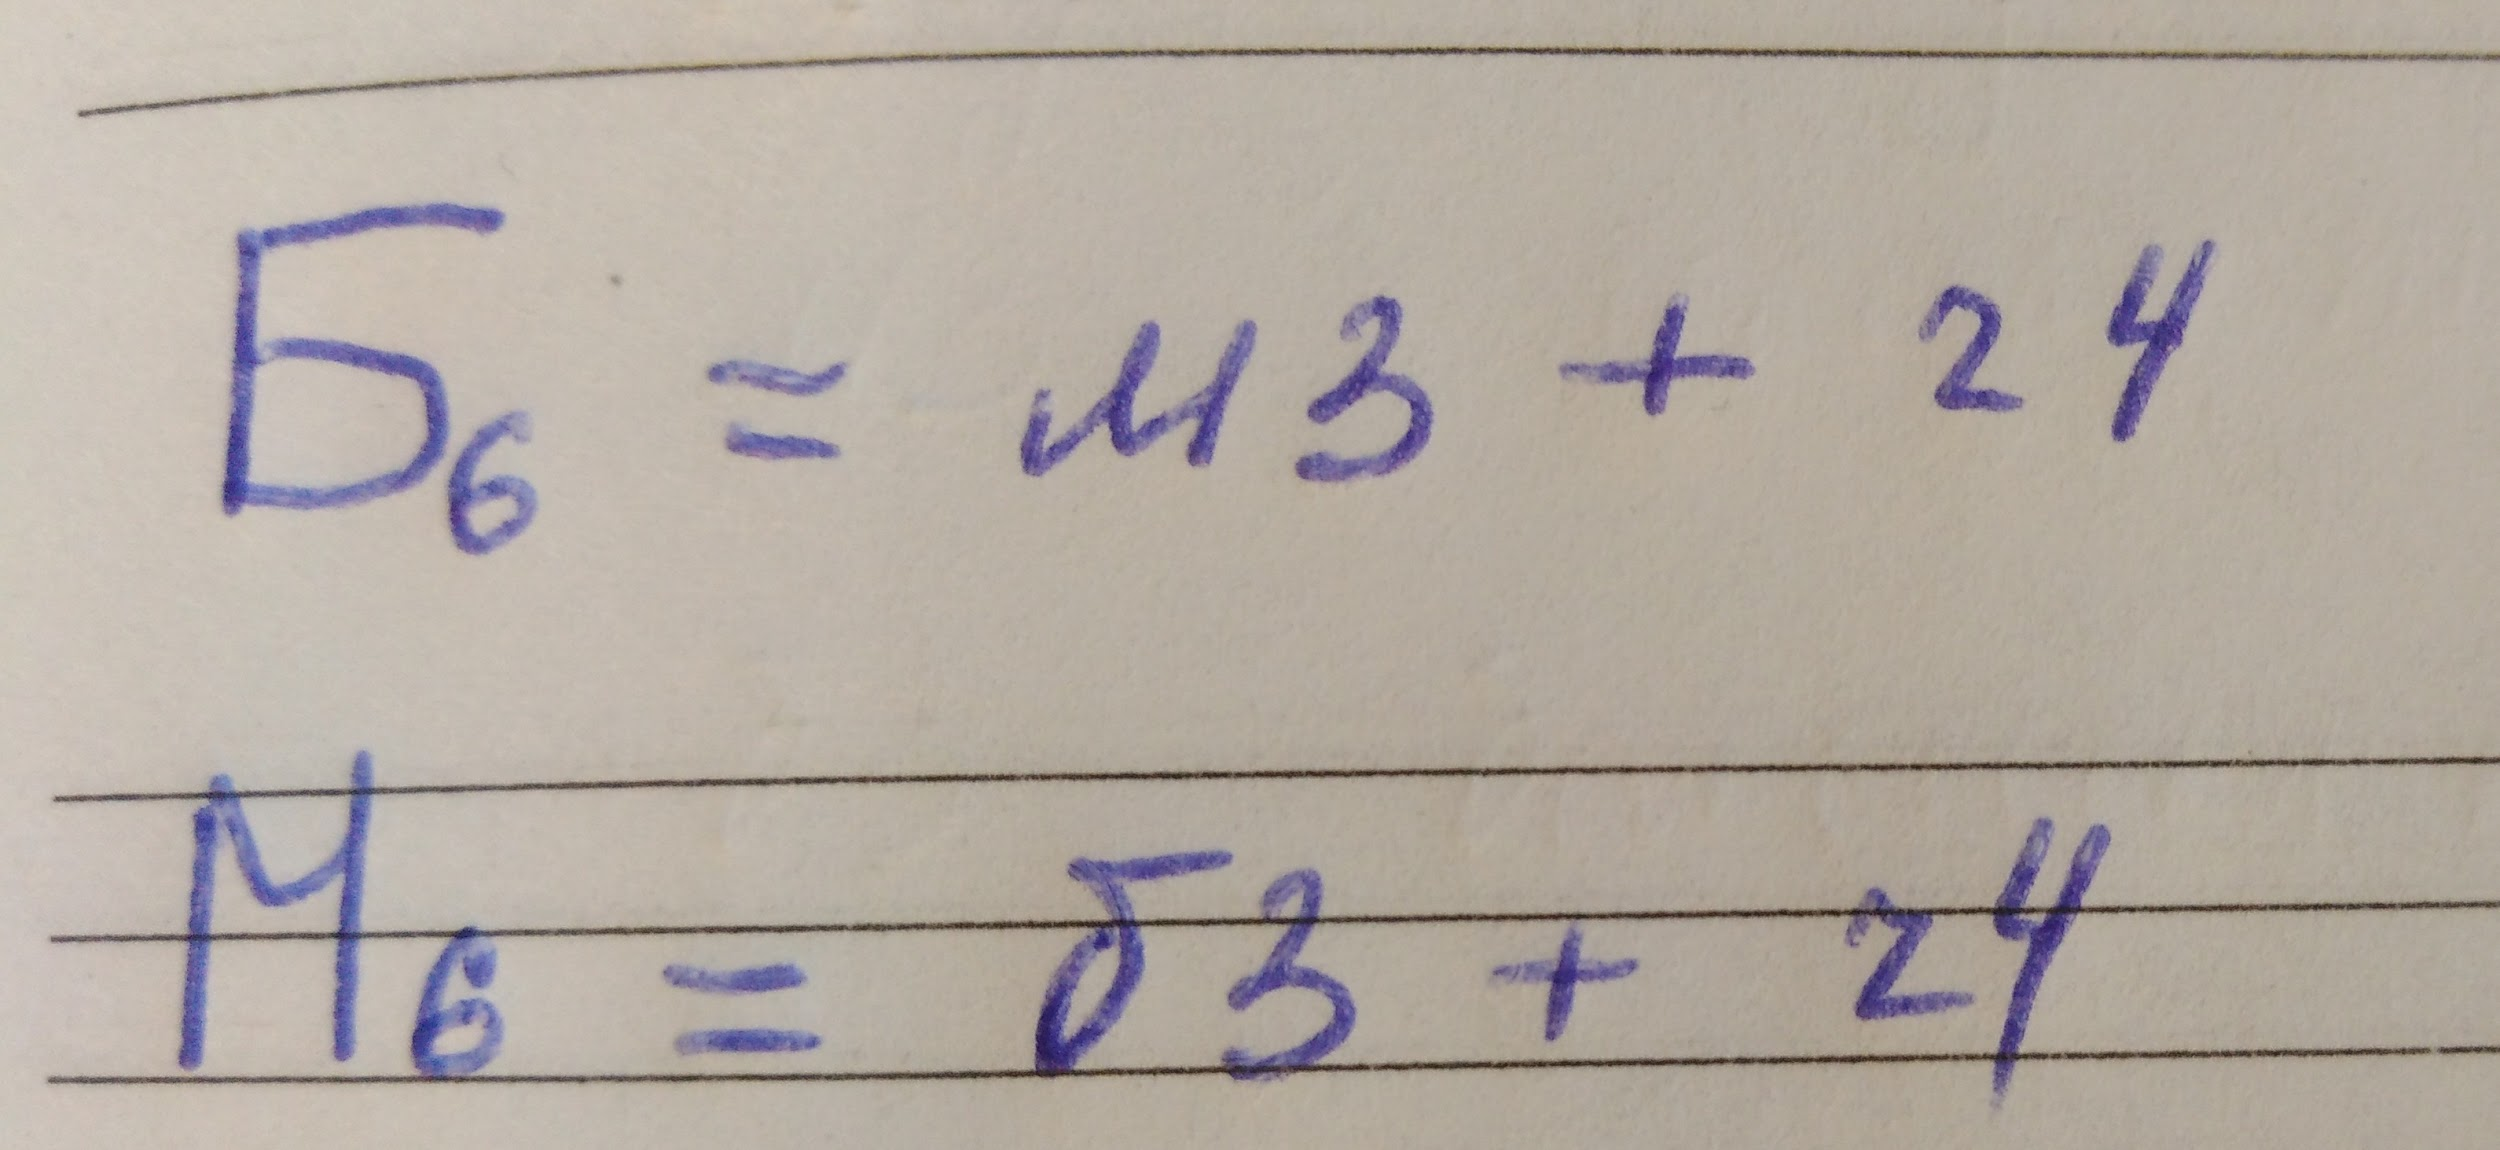 Б6 = м3 + 24
М6 = б3 + 24